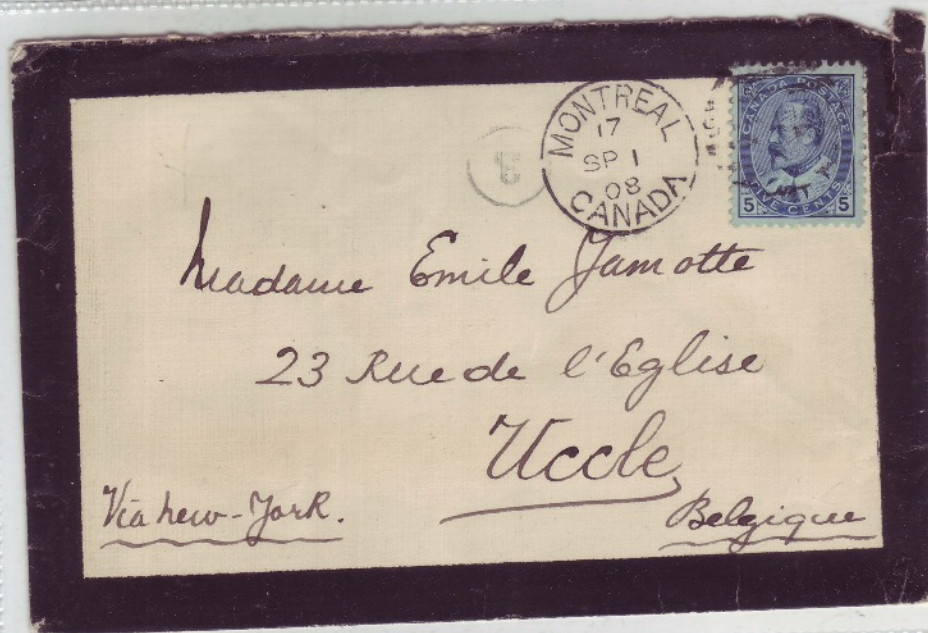 MONTREAL
17
SP 1
08
CANADA
CANADA POSTAGE
5 FIVE CENTS 5
Madame Emile Jamotte
23 Rue de l'Eglise
Uccle
Via new-York.
Belgique